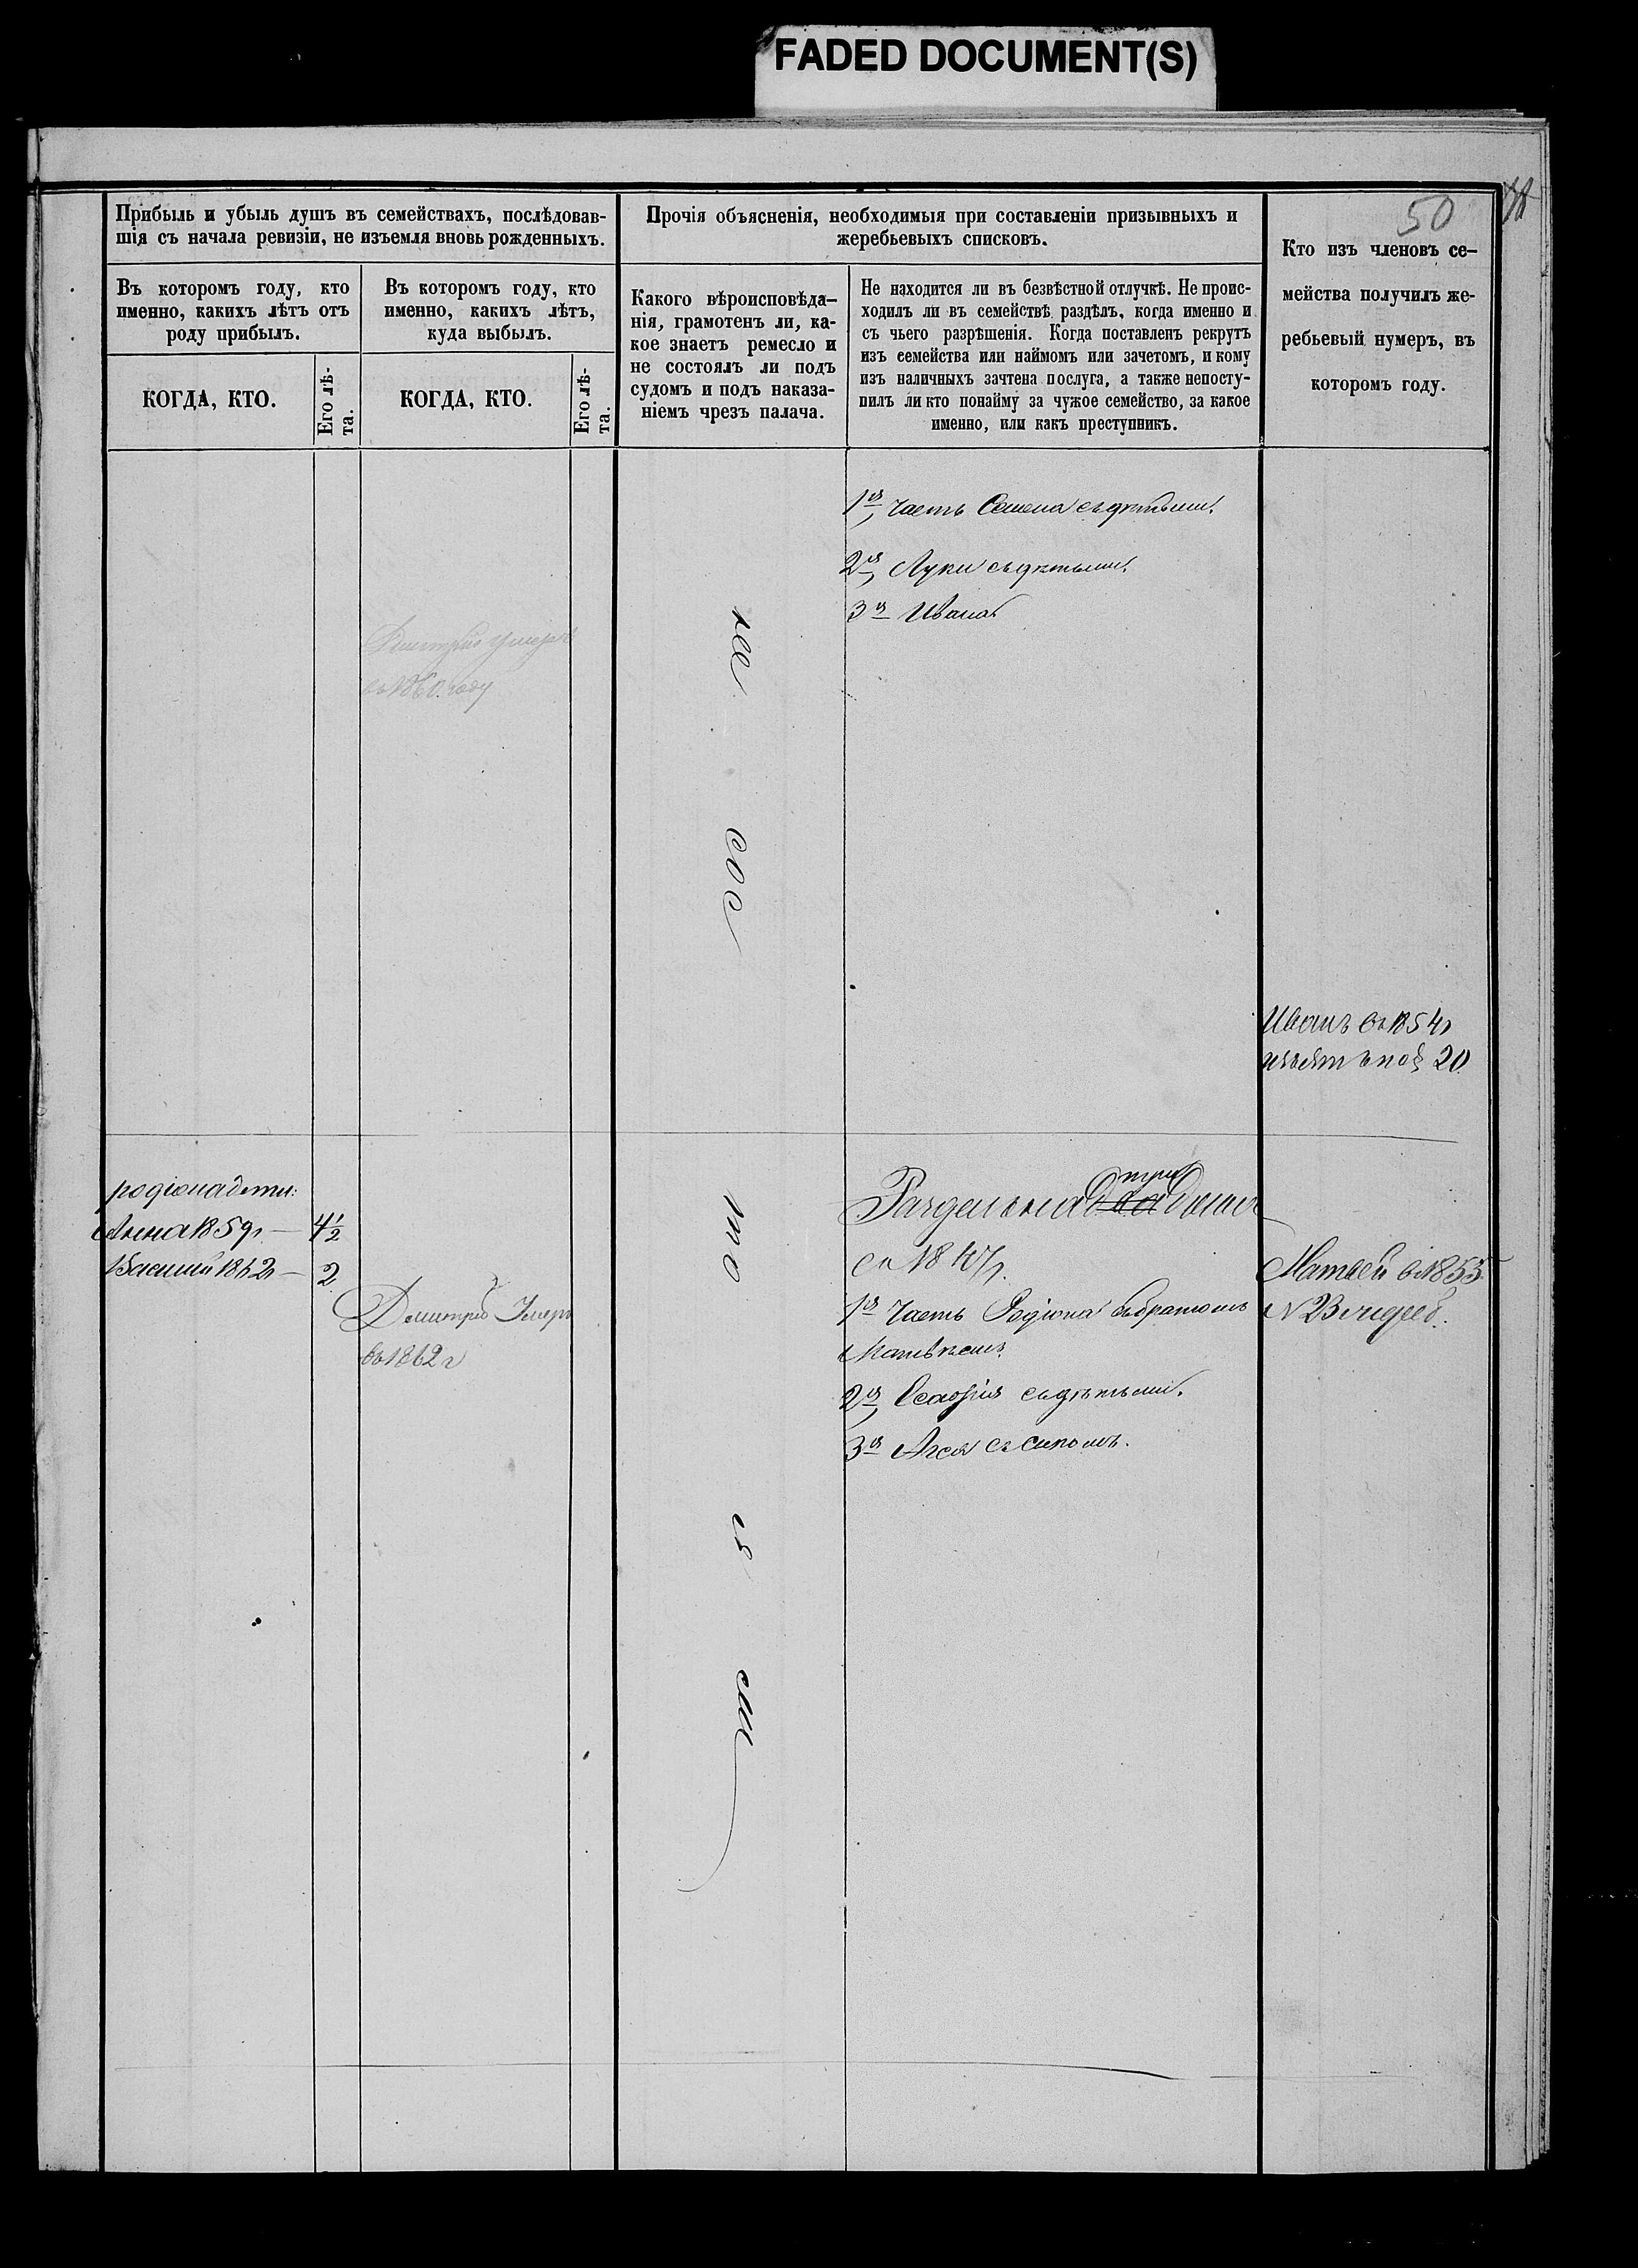 FADED DOCUMENT(S)
50
Прибыль и убыль душъ въ семействахъ, послѣдовав-
шія съ начала ревизіи, не изъемля вновь рожденныхъ.
Въ которомъ году, кто
именно, какихъ лѣтъ отъ
роду прибылъ.
КОГДА, КТО.
Его лѣ-
та.
Въ которомъ году, кто
именно, какихъ лѣтъ,
куда выбылъ.
КОГДА, КТО.
Его лѣ-
та.
Прочія объясненія, необходимыя при составленіи призывныхъ и
жеребьевыхъ списковъ.
Какого вѣроисповѣда-
нія, грамотенъ ли, ка-
кое знаетъ ремесло и
не состоялъ ли подъ
судомъ и подъ наказа-
ніемъ чрезъ палача.
Не находится ли въ безвѣстной отлучкѣ. Не проис-
ходилъ ли въ семействѣ раздѣлъ, когда именно и
съ чьего разрѣшенія. Когда поставленъ рекрутъ
изъ семейства или наймомъ или зачетомъ, и кому
изъ наличныхъ зачтена послуга, а также непосту-
пилъ ли кто понайму за чужое семейство, за какое
именно, или какъ преступникъ.
Кто изъ членовъ се-
мейства получилъ же-
ребьевый нумеръ, въ
которомъ году.
1я часть Семена съ дѣтьми.
2я Луки съ дѣтьми.
3я Ивана
Дмитрій умеръ
въ 1860. году
не
сос
то
Иванъ въ 1854
20
родіона дети:
Анна 1859г — 4½
Василій 1862г — 2
Дмитрій Умеръ
въ 1862 г
три
Разделена два
съ 18
1я часть Родіона съ братомъ
Матвѣемъ
2я съ дѣтьми.
3я съ сыномъ.
Матвей въ 1855
N 23